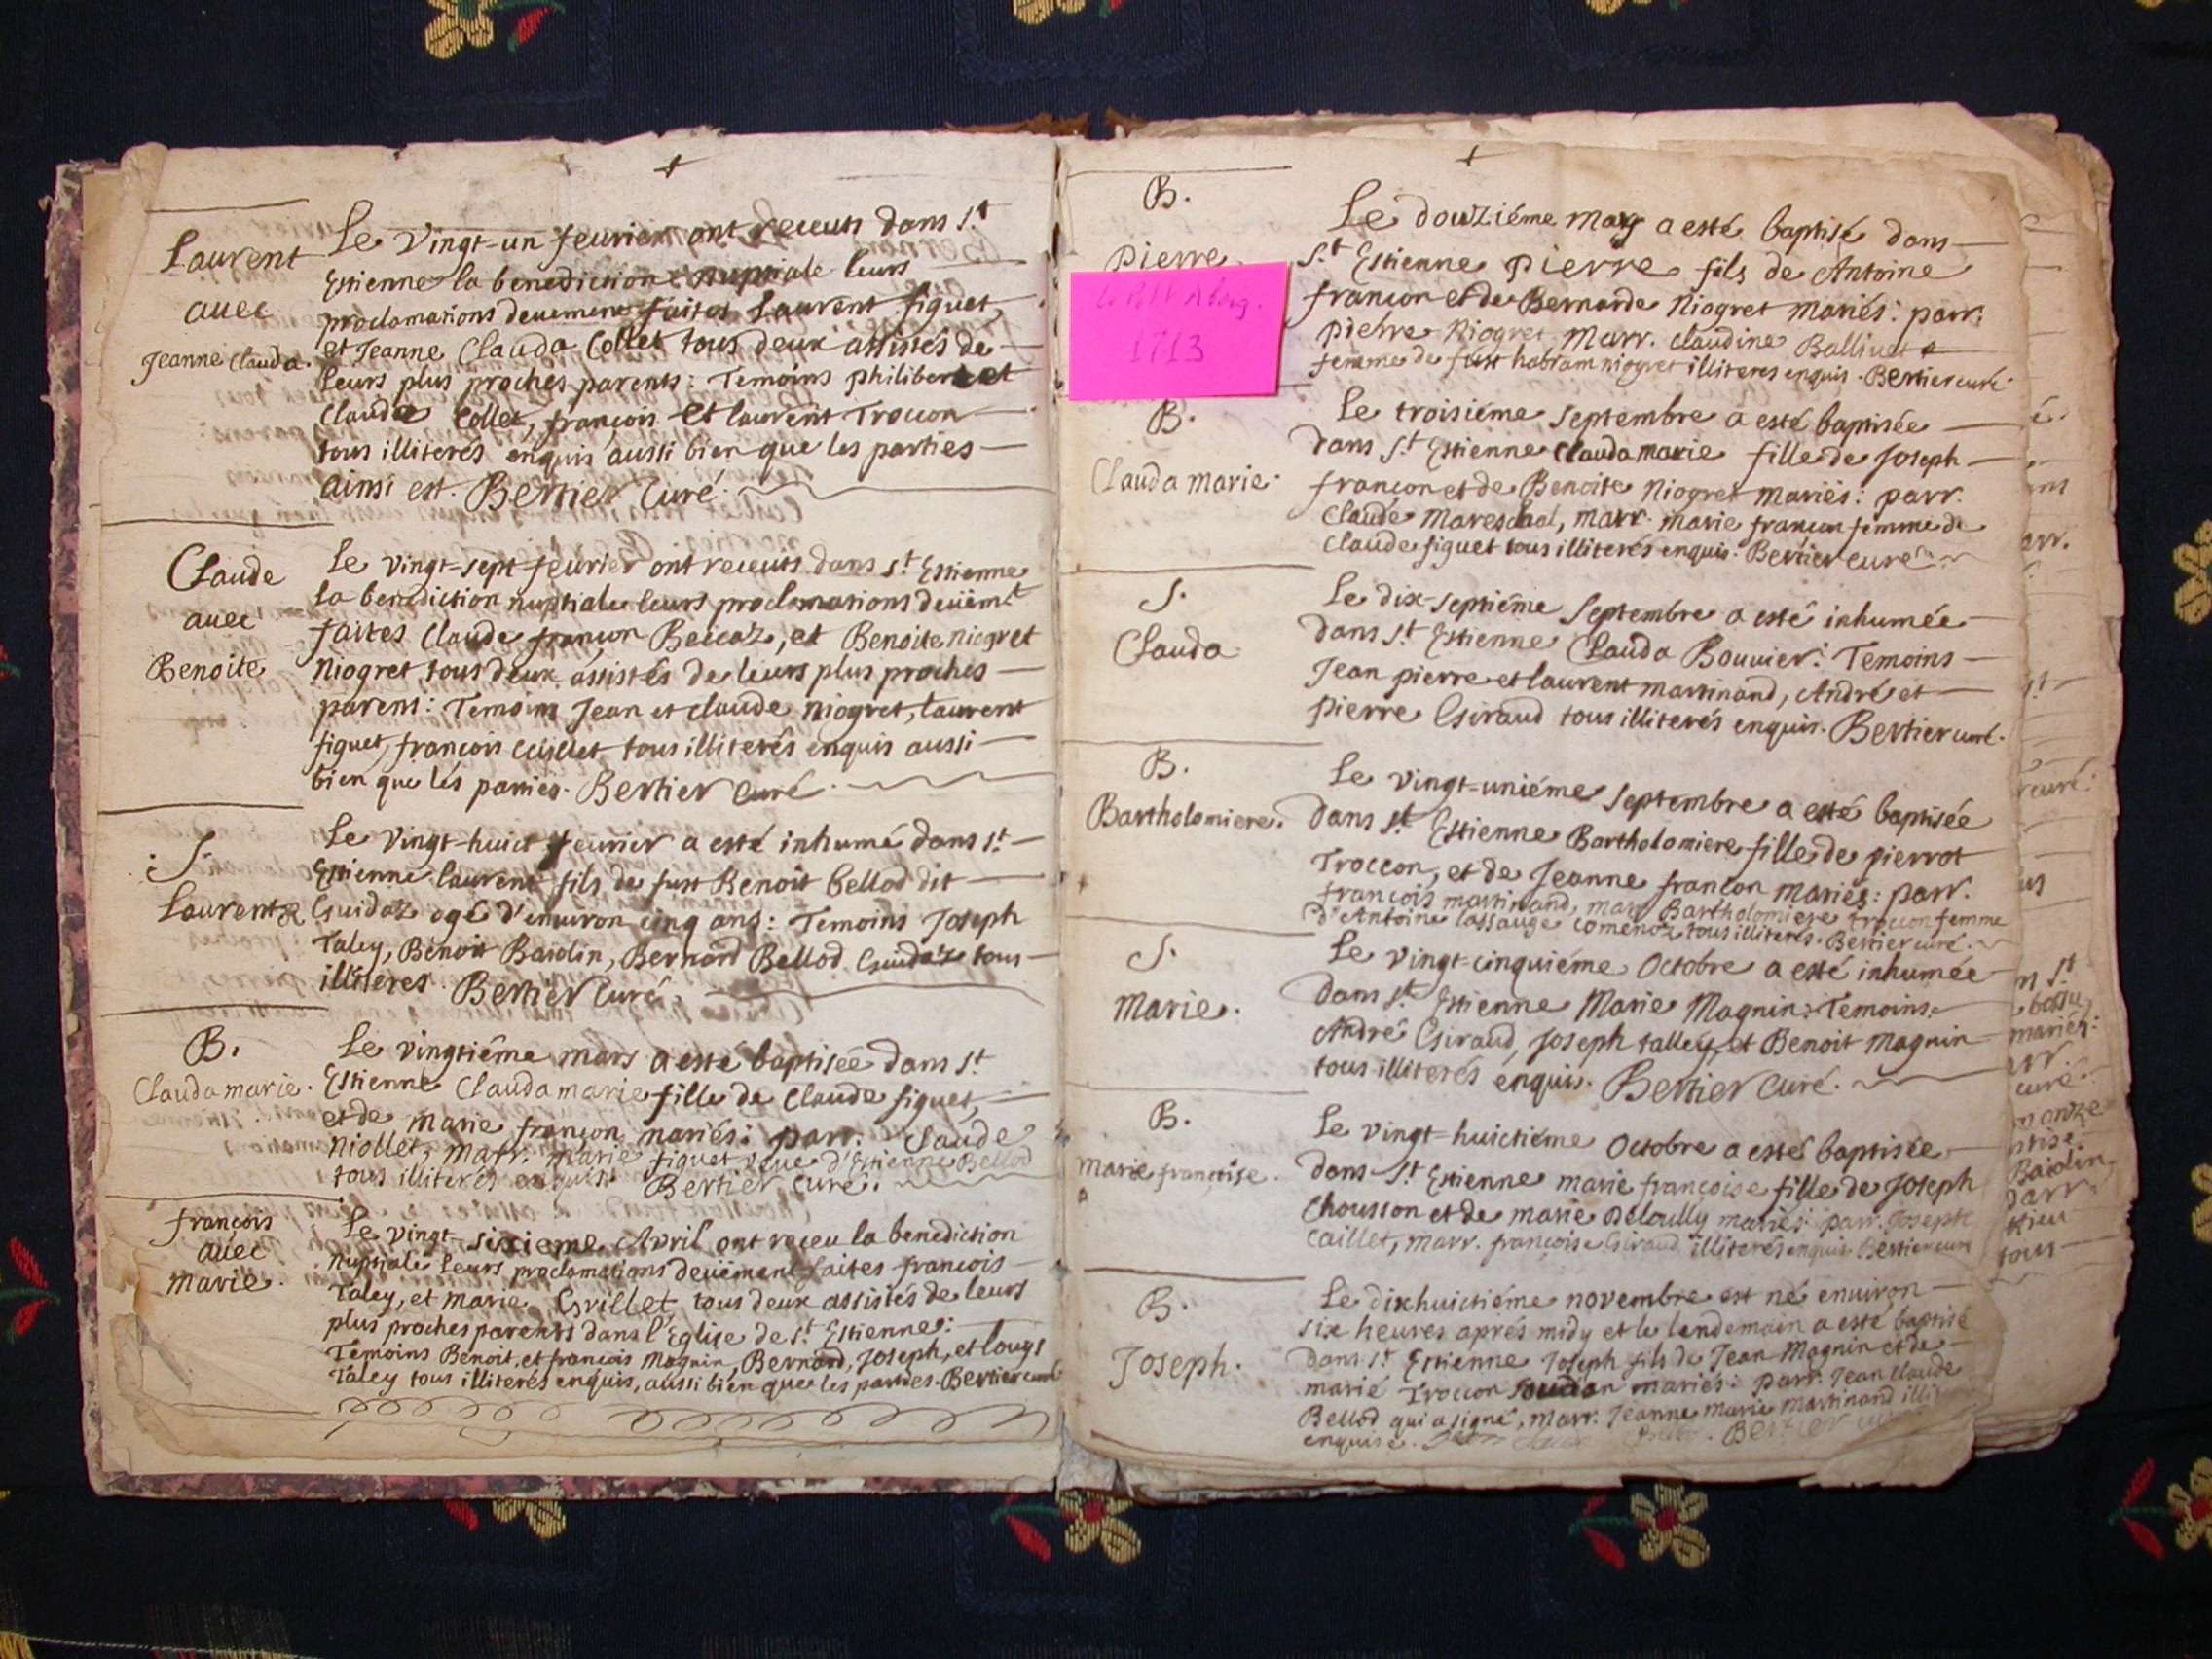 Laurent
avec
Jeanne Clauda.
Le vingt-un feurier ont receus dans s.t
Estienne la benediction nuptiale leurs
proclamations deuement faites Laurent figuet,
et Jeanne Clauda Collet tous deux assistés de
leurs plus proches parents: Temoins philibert et
Claude Collet, françois et laurent Troccon
tous illiterés enquis aussi bien que les parties
ainsi est. Bertier Curé.
Claude
auec
Benoite
Le vingt-sept feurier ont receus dans s.t Estienne
la benediction nuptiale leurs proclamations deüem.t
faites Claude françon Beccaz, et Benoite niogret
Niogret tous deux assistés de leurs plus proches
parens: Temoins Jean et claude niogret, laurent
figuet, françois Cuillet tous illiterés enquis aussi
bien que les parties. Bertier Curé.
S.
Laurent
Le vingt-huict feurier a esté inhumé dans s.t
Estienne laurent fils de fust Benoit bellod dit
Guidaz agé d'enuiron cinq ans: Temoins Joseph
Taley, Benoit Baidin, Bernard Bellod Guidaz tous
illiteres. Bertier Curé.
B.
Clauda marie.
Le vingtiéme mars a esté baptisée dans s.t
Estienne Clauda marie fille de Claude figuet,
et de marie françon mariés: parr. Claude
Niollet, marr. marie figuet veue d'Estienne Bellod
tous illiterés enquis. Bertier Curé.
françois
auec
marie.
Le vingt-sixieme Avril ont receu la benediction
Nuptiale leurs proclamations deüement faites françois
Taley, et marie Grillet tous deux assistés de leurs
plus proches parents dans l'Eglise de s.t Estienne:
Temoins Benoit, et françois Magnin, Bernard, Joseph, et Louys
Taley tous illiterés enquis, aussi bien que les parties. Bertier curé
B.
Pierre
1713
Le douziéme may a esté baptisé dans
s.t Estienne Pierre fils de Antoine
françon et de Bernarde Niogret Mariés: parr.
Pierre Niogret, Marr. Claudine Balliuet
femme de fust habram niogret illiteres enquis. Bertier curé.
B.
Clauda marie.
Le troisiéme septembre a esté baptisée
dans s.t Estienne Clauda marie fille de Joseph
françon et de Benoite Niogret mariés: parr.
Claude Mareschal, marr. marie françon femme de
Claude figuet tous illiterés enquis. Bertier curé.
S.
Clauda
Le dix-septiéme Septembre a esté inhumée
dans s.t Estienne Clauda Bouuier: Temoins
Jean pierre et laurent martinand, André et
Pierre Giraud tous illiterés enquis. Bertier curé.
B.
Bartholomiere.
Le vingt-uniéme septembre a esté baptisée
dans s.t Estienne Bartholomiere fille de pierrot
Troccon, et de Jeanne françon mariés: parr.
françois martinand, marr. Bartholomiere troccon femme
d'Antoine lassauge comenoz tous illiterés. Bertier curé.
S.
Marie.
Le vingt-cinquiéme Octobre a esté inhumée
dans s.t Estienne Marie Magnin: Temoins
André Giraud, Joseph talley, et Benoit Magnin
tous illiterés enquis. Bertier Curé.
B.
Marie françoise.
Le vingt-huictiéme Octobre a esté baptisée
dans s.t Estienne marie françoise fille de Joseph
Chousson et de marie Deloully mariés: parr. Joseph
Caillet, marr. françoise Giraud illiterés enquis Bertier cure
B.
Joseph.
Le dixhuictiéme novembre est né enuiron
six heures aprés midy et le lendemain a esté baptisé
dans s.t Estienne Joseph fils de Jean Magnin et de
marie Troccon mariés: parr. Jean Claude
Bellod qui a signé, marr. Jeanne Marie martinand
enquise. Bertier